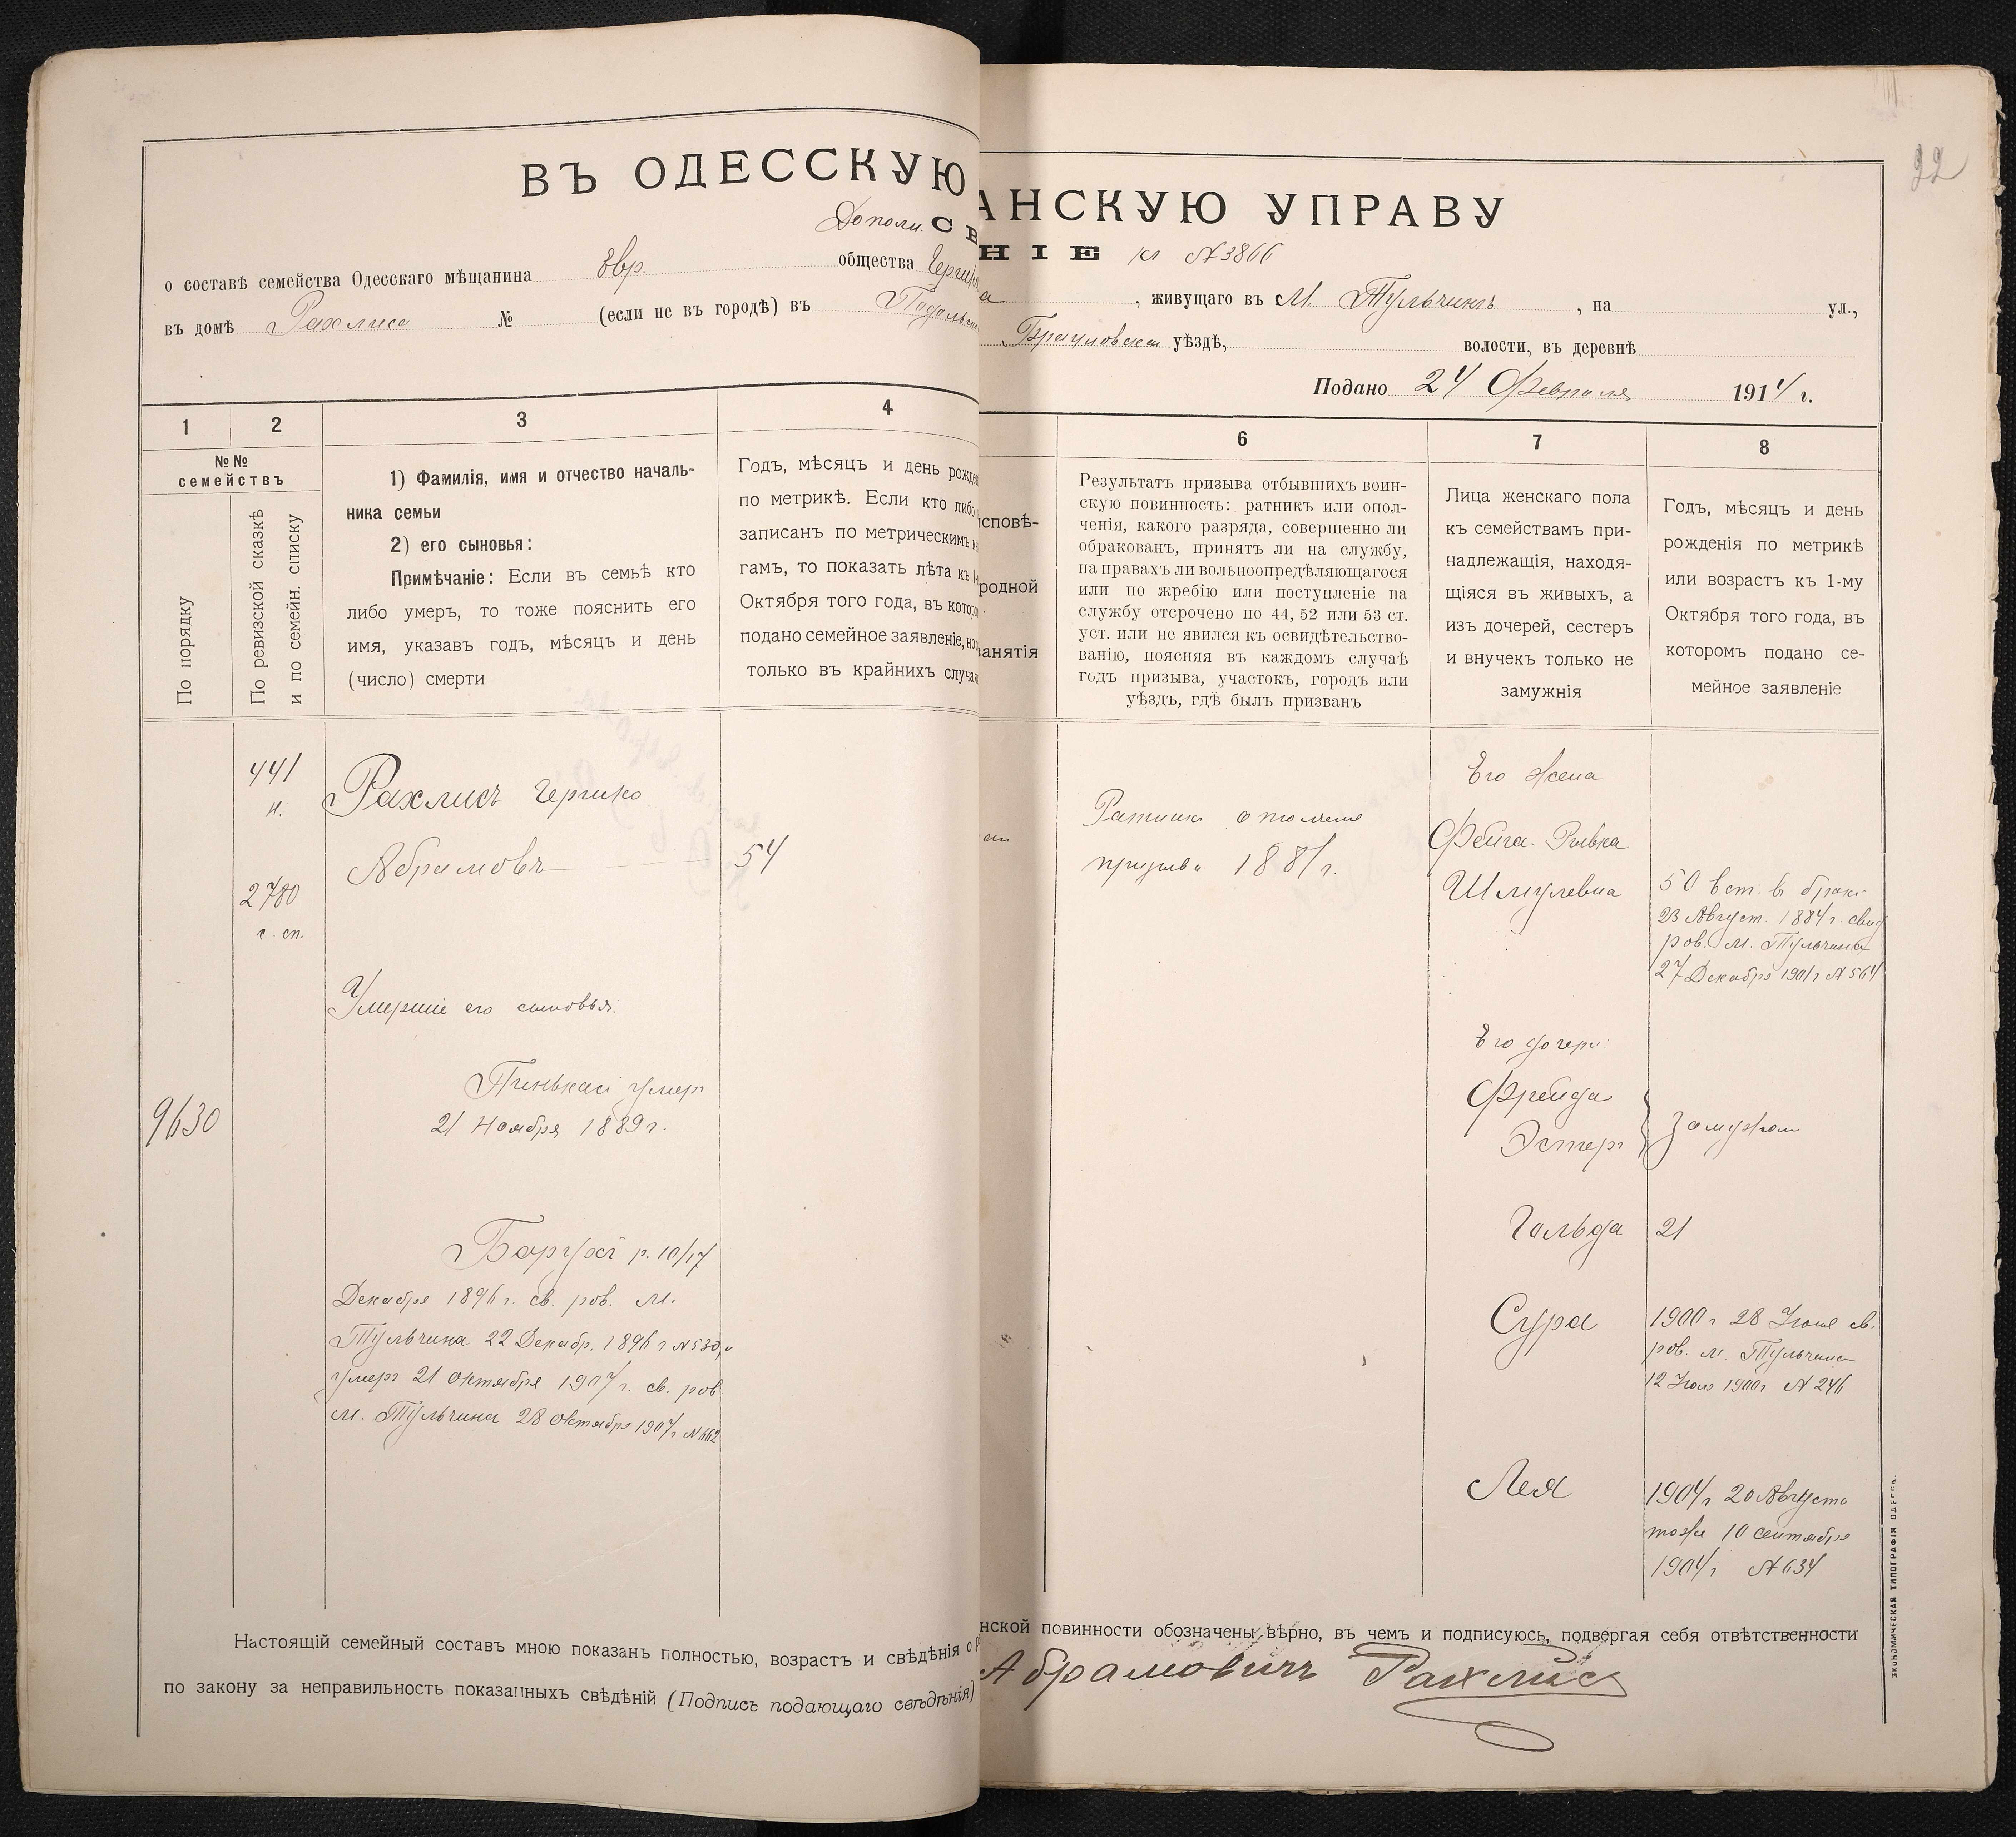 22
ВЪ ОДЕССКУЮ
АНСКУЮ УПРАВУ
Дополн. СВ
НІЕ къ №3866
о составѣ семейства Одесскаго мѣщанина Евр. общества
а, живущаго въ М. Тульчинѣ, на ул.,
въ домѣ Рахлиса № (если не въ городѣ) въ Подольск
уѣздѣ, волости, въ деревнѣ
Подано 24 Февраля 1914 г.
1
2
3
4
6
7
8
№№
семействъ
По порядку
По ревизской сказкѣ
и по семейн. списку
1) Фамилія, имя и отчество началь-
ника семьи
2) его сыновья:
Примѣчаніе: Если въ семьѣ кто
либо умеръ, то тоже пояснить его
имя, указавъ годъ, мѣсяцъ и день
(число) смерти
Годъ, мѣсяцъ и день рожде
по метрикѣ. Если кто либо
записанъ по метрическимъ
гамъ, то показать лѣта къ 1
Октября того года, въ котор
подано семейное заявленіе, но
только въ крайнихъ случа
исповѣ-
родной
занятія
Результатъ призыва отбывшихъ воин-
скую повинность: ратникъ или опол-
ченія, какого разряда, совершенно ли
обракованъ, принятъ ли на службу,
на правахъ ли вольноопредѣляющагося
или по жребію или поступленіе на
службу отсрочено по 44, 52 или 53 ст.
уст. или не явился къ освидѣтельство-
ванію, поясняя въ каждомъ случаѣ
годъ призыва, участокъ, городъ или
уѣздъ, гдѣ былъ призванъ
Лица женскаго пола
къ семействамъ при-
надлежащія, находя-
щіяся въ живыхъ, а
изъ дочерей, сестеръ
и внучекъ только не
замужнія
Годъ, мѣсяцъ и день
рожденія по метрикѣ
или возрастъ къ 1-му
Октября того года, въ
которомъ подано се-
мейное заявленіе
9630
441
н.
2780
с. сп.
Рахлисъ Гершко
Абрамовъ 54
Умершіе его сыновья:
Пинькасъ умеръ
21 Ноября 1889 г.
Борухъ р. 10/17
Декабря 1896 г. св. рав. м.
Тульчина 22 Декабр. 1896 г №530, и
умеръ 21 октября 1907 г. св. рав.
м. Тульчина 28 октября 1907 г №662
Ратникъ ополчен
призыва 1881 г.
Его жена
Фейга-Рывка
Шмулевна
50 вст. въ бракъ
23 Август. 1884 г. свид
рав. м. Тульчина
27 Декабря 1901 г №564
Его дочери:
Фрейда
Эстеръ
замужем
Гольда 21
Сура
1900 г 28 Июня св.
рав. м. Тульчина
12 Июля 1900 г №246
Лея
1904 г 20 Августа
тоже 10 сентября
1904 г №634
Настоящій семейный составъ мною показанъ полностью, возрастъ и свѣдѣнія о
нской повинности обозначены вѣрно, въ чемъ и подписуюсь, подвергая себя отвѣтственности
по закону за неправильность показанныхъ свѣдѣній (Подпись подающаго свѣдѣнія)
Абрамовичъ Рахлисъ
ЭКОНОМИЧЕСКАЯ ТИПОГРАФІЯ ОДЕССА.